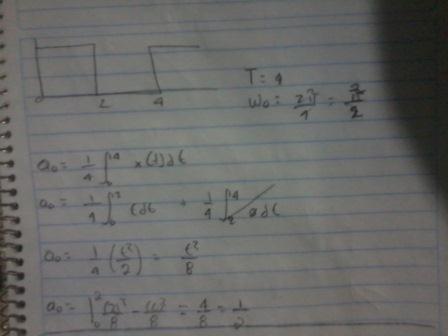 0 2 4
T = 4
W₀ = 2π/4 = π/2
a₀ = 1/4 ∫₀⁴ x(t)dt
a₀ = 1/4 ∫₀² t dt + 1/4 ∫₂⁴ 0 dt
a₀ = 1/4 (t²/2) = t²/8
a₀ = |₀² (2)²/8 - (0)²/8 = 4/8 = 1/2